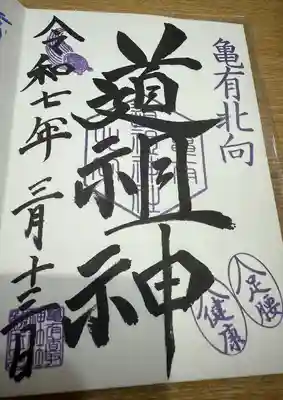 亀有北向
道祖神
令和七年三月十三日
足腰
健康